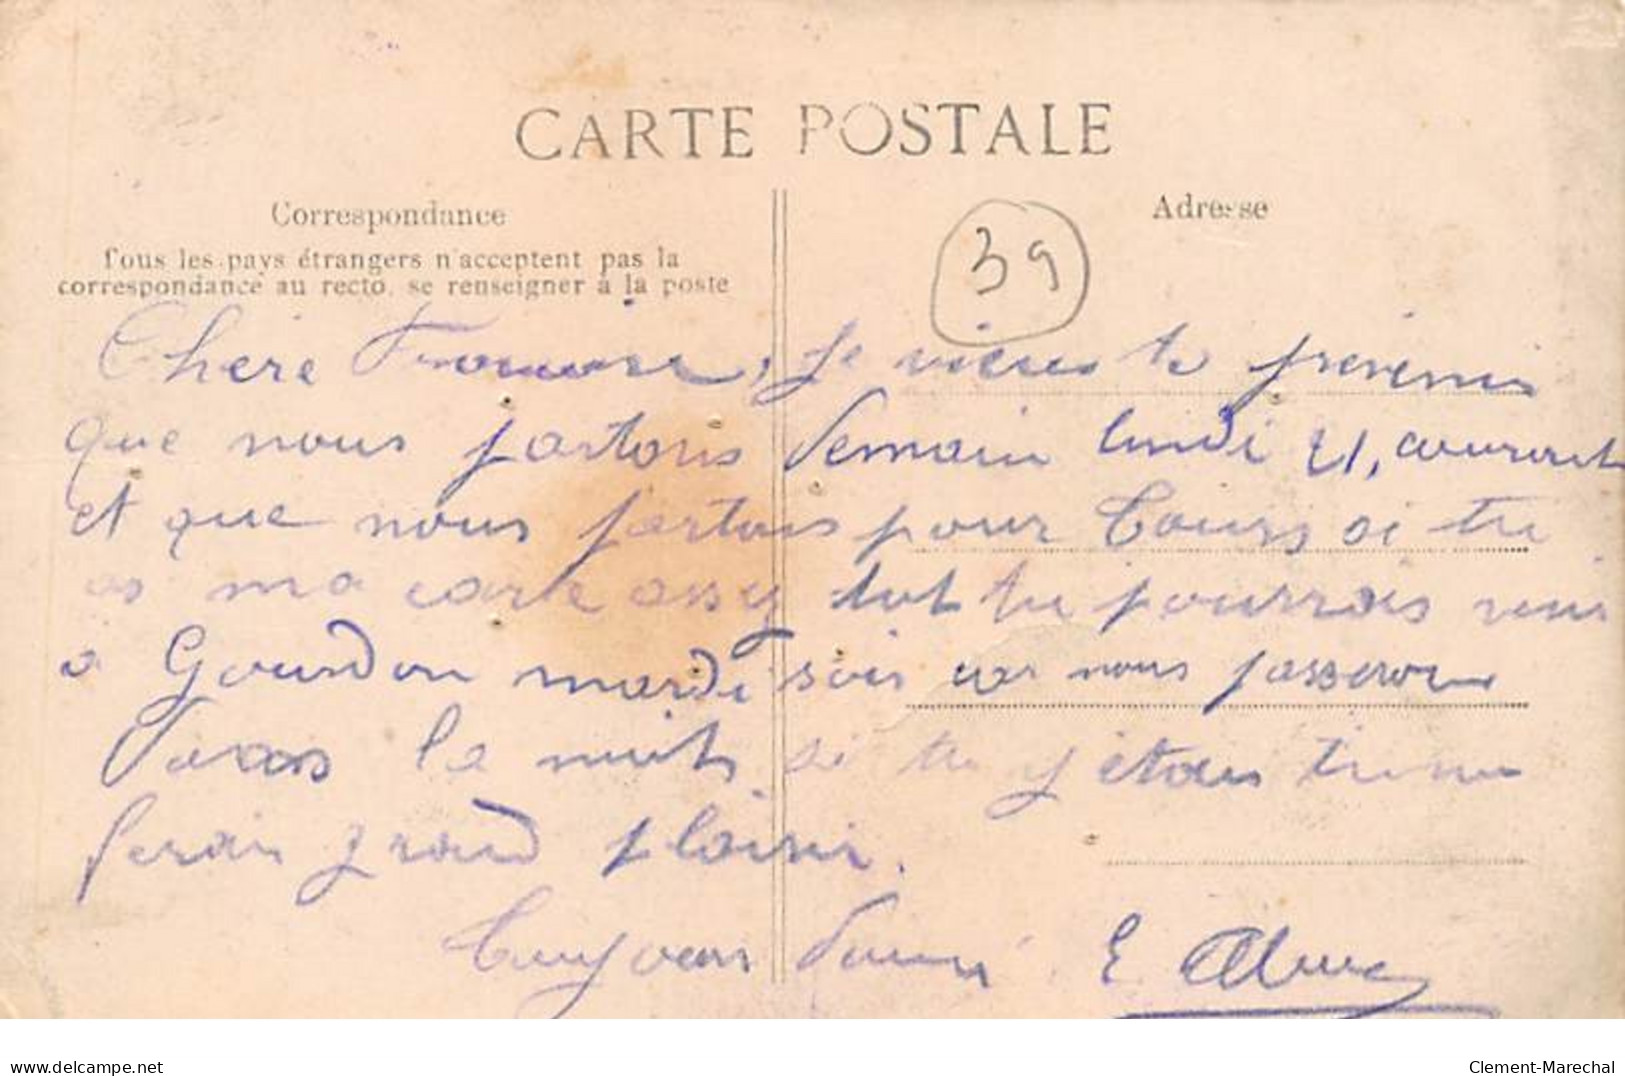 CARTE POSTALE
Correspondance
Tous les pays étrangers n'acceptent pas la
correspondance au recto, se renseigner à la poste
Adresse
39
Chere je viens te prevenir
que nous partons demain lundi 21, courant
et que nous partons pour Tours si tu
as ma carte assez tot tu pourras venir
a Gourdon mardi soir car nous passerons
dans la nuit si tu y etais tu me
ferais grand plaisir.
E
www.delcampe.net
Clement-Marechal